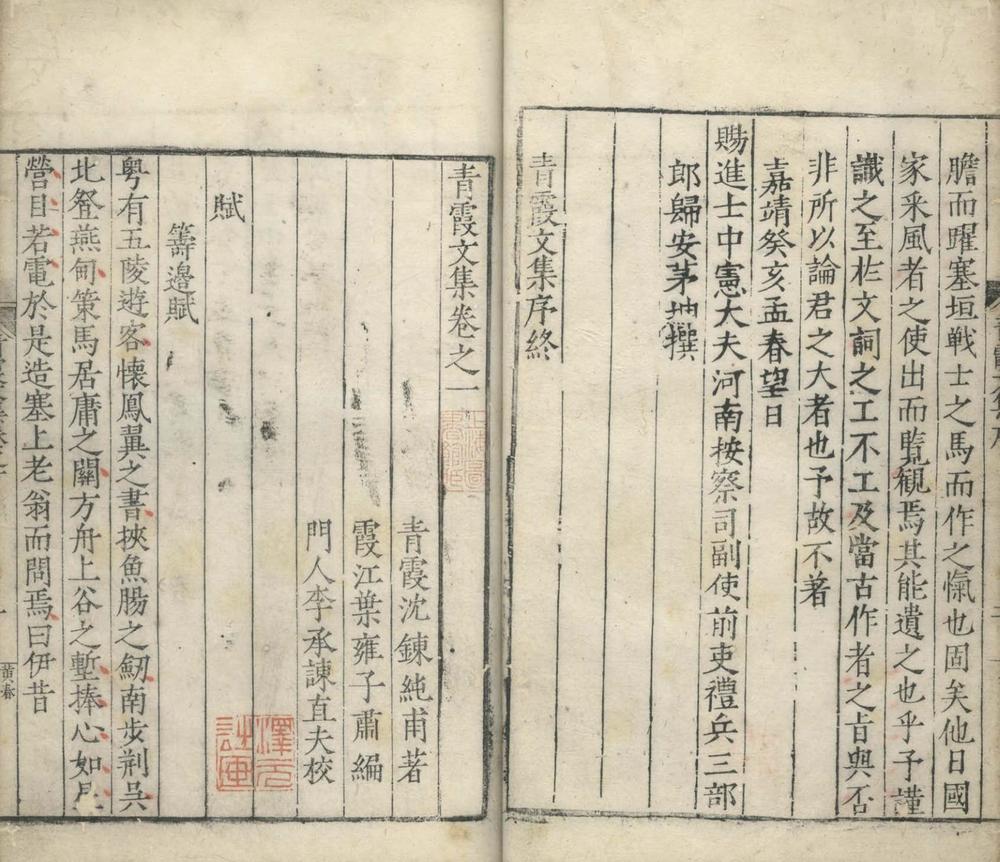 膽而躍塞垣戰士之馬而作之愾也固矣他日國
家采風者之使出而覧観焉其能遺之也乎予謹
識之至扵文詞之工不工及當古作者之㫖與否
非所以論君之大者也予故不著
嘉靖癸亥孟春望日
賜進士中憲大夫河南按察司副使前吏禮兵三部
郎歸安茅坤撰
青霞文集序終
青霞文集卷之一
青霞沈鍊純甫著
霞江葉雍子肅編
門人李承諫直夫校
賦
籌邊賦
粵有五陵遊客懷鳳翼之書挾魚腸之劒南步荊吳
北登燕甸策馬居庸之關方舟上谷之塹捧心如
營目若電於是造塞上老翁而問焉曰伊昔
黃春